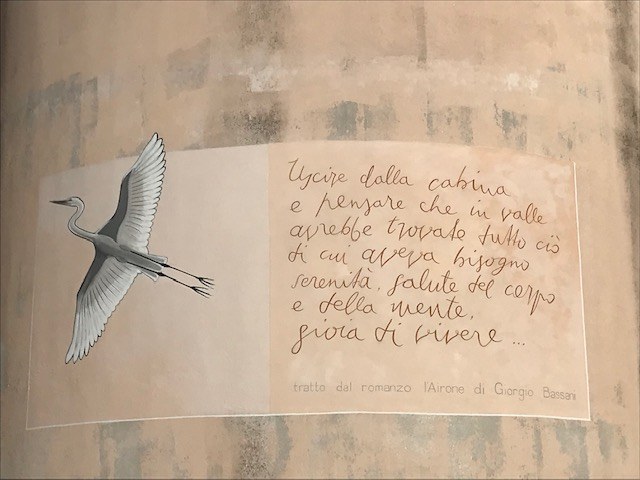 Uscire dalla cabina
e pensare che in valle
avrebbe trovato tutto ciò
di cui aveva bisogno
serenità, salute del corpo
e della mente,
gioia di vivere ...
tratto dal romanzo l'Airone di Giorgio Bassani